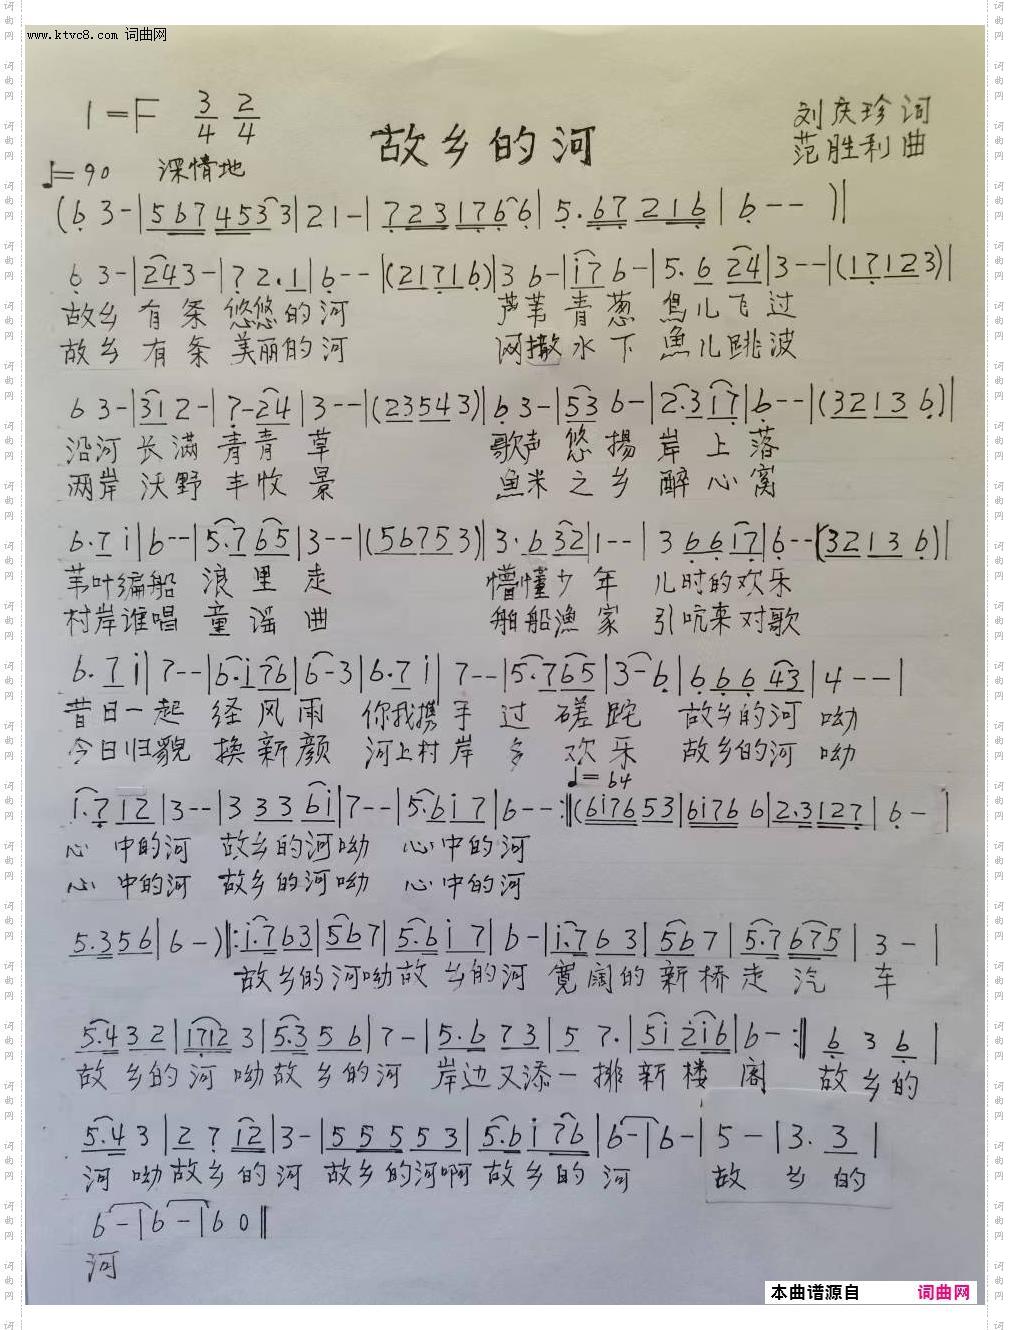 www.ktvc8.com 词曲网
1=F 3/4 2/4
故乡的河
刘庆珍 词
范胜利 曲
♩=90 深情地
(6 3-|567 4533|21-|723 1766|5.67 216|6-- )|
6 3-|243-|72.1|6--|(21716)|3 6-|i76-|5.6 24|3--|(17123)|
故乡 有条 悠悠的河 芦苇 青葱 鸟儿飞过
故乡 有条 美丽的河 网撒水下 魚儿跳波
6 3-|31 2-|7-24|3--|(23543)|6 3-|53 6-|2.3i7|6--|(3213 6)|
沿河 长满 青青 草 歌声 悠扬 岸上落
两岸 沃野 丰收 景 鱼米之乡 醉心窝
6.7 i|6--|5.7 65|3--|(56753)|3.6 32|1--|3 66i7|6--(3213 6)|
苇叶编船 浪里走 懵懂少年 儿时的欢乐
村岸谁唱 童谣曲 船船渔家 引吭来对歌
6.7 i|7--|6.i76|6-3|6.7 i|7--|5.765|3-6|666 43|4--|
昔日一起 经风雨 你我携手过磋跎 故乡的河呦
今日归貌 换新颜 河上村岸多欢乐 故乡的河呦
♩=64
i.7 12|3--|333 6i|7--|5.6i7|6--:‖(6i7653|6i766|2.3127|6-|
心中的河 故乡的河呦 心中的河
心中的河 故乡的河呦 心中的河
5.356|6-)‖:i.763|567|5.6i7|6-|i.763|567|5.7675|3-|
故乡的河呦故乡的河 宽阔的新桥走汽车
5.432|17123|5.356|7-|5.673|57.|5i2i6|6-:‖6 3 6|
故乡的河呦故乡的河 岸边又添一排新楼阁 故乡的
5.43|27i2|3-|55553|5.6i76|6-|6-|5-|3.3|
河呦故乡的河 故乡的河啊故乡的河 故乡的
6-|6-|60‖
河
本曲谱源自 词曲网